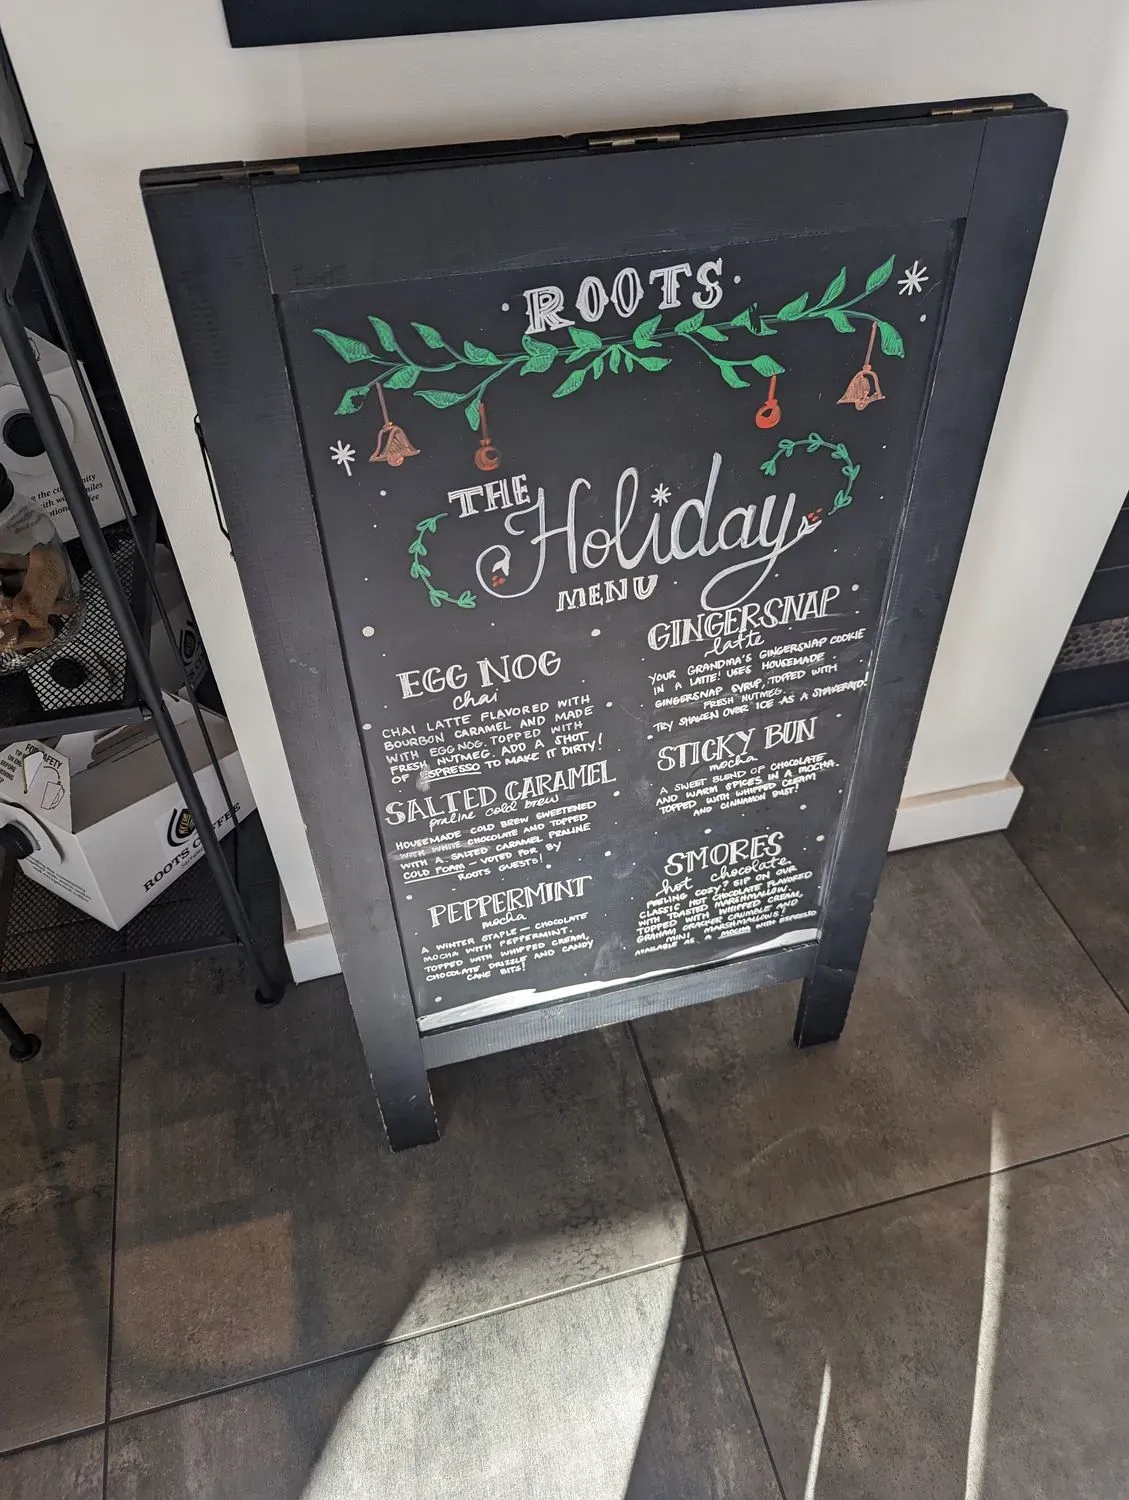 ROOTS
THE Holiday
MENU
EGG NOG
chai
CHAI LATTE FLAVORED WITH
BOURBON CARAMEL AND MADE
WITH EGG NOG. TOPPED WITH
FRESH NUTMEG. ADD A SHOT
OF ESPRESSO TO MAKE IT DIRTY!
SALTED CARAMEL
praline cold brew
HOUSEMADE COLD BREW SWEETENED
WITH WHITE CHOCOLATE AND TOPPED
WITH A SALTED CARAMEL PRALINE
COLD FOAM - VOTED FOR BY
ROOTS GUESTS!
PEPPERMINT
mocha
A WINTER STAPLE - CHOCOLATE
MOCHA WITH PEPPERMINT.
TOPPED WITH WHIPPED CREAM,
CHOCOLATE DRIZZLE AND CANDY
CANE BITS!
GINGERSNAP
latte
YOUR GRANDMA'S GINGERSNAP COOKIE
IN A LATTE! USES HOUSEMADE
GINGERSNAP SYRUP, TOPPED WITH
FRESH NUTMEG.
TRY SHAKEN OVER ICE AS A SHAKERATO!
STICKY BUN
mocha
A SWEET BLEND OF CHOCOLATE
AND WARM SPICES IN A MOCHA.
TOPPED WITH WHIPPED CREAM
AND CINNAMON DUST!
SMORES
hot chocolate
FEELING COZY? SIP ON OUR
CLASSIC HOT CHOCOLATE FLAVORED
WITH TOASTED MARSHMALLOW.
TOPPED WITH WHIPPED CREAM,
GRAHAM CRACKER CRUMBLE AND
MINI MARSHMALLOWS!
AVAILABLE AS A MOCHA WITH ESPRESSO
FOR SAFETY
ROOTS COFFEE